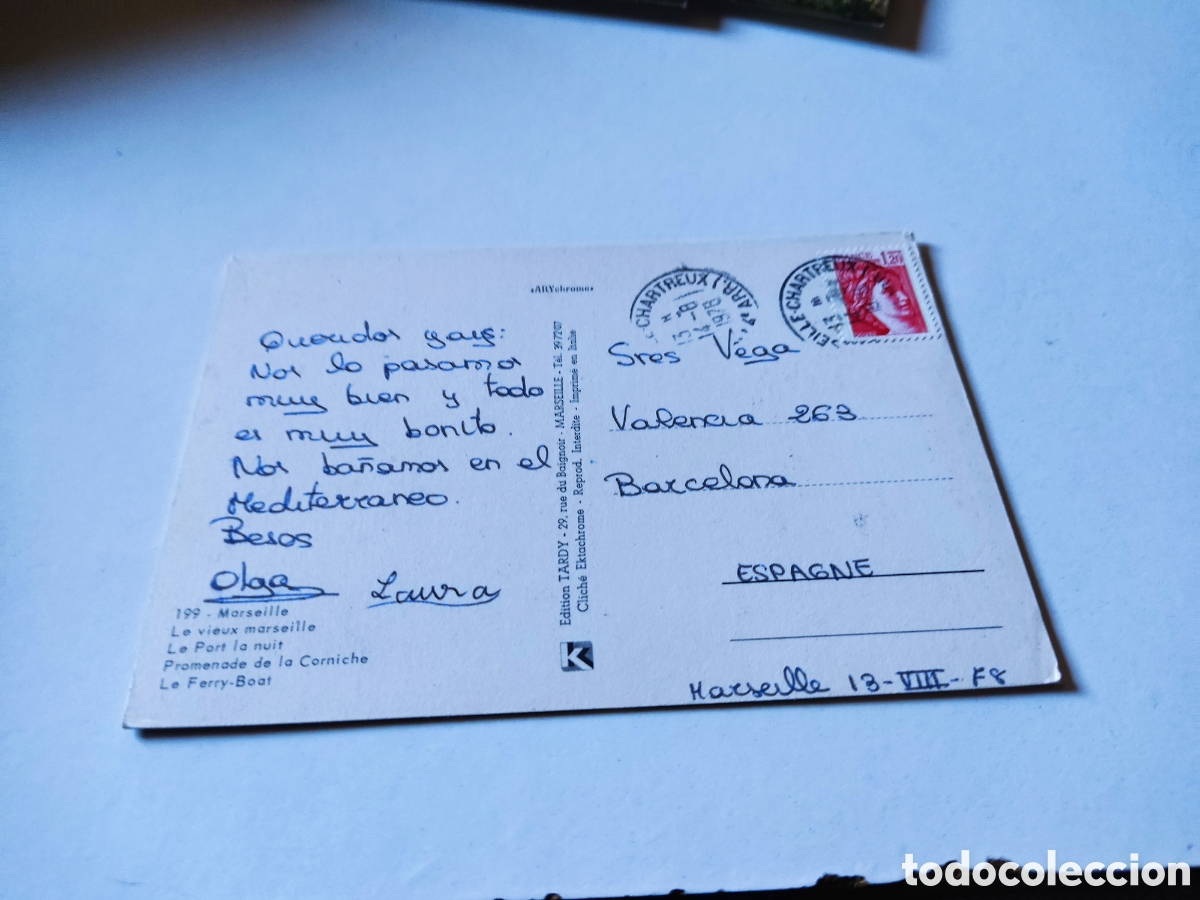 «ARYchrome»
Queridos
Nos lo pasamos
muy bien y todo
es muy bonito.
Nos bañamos en el
Mediterraneo.
Besos
Olga Laura
199 - Marseille
Le vieux marseille
Le Port la nuit
Promenade de la Corniche
Le Ferry-Boat
Edition TARDY - 29, rue du Baignoir - MARSEILLE - Tél. 397207
Cliché Ektachrome - Reprod. Interdite - Imprimé en Italie
K
CHARTREUX (
13 -8
1978
EILLE-CHARTREUX
1,20
Sres Vega
Valencia 263
Barcelona
ESPAGNE
Marseille 13-VIII-78
todocoleccion